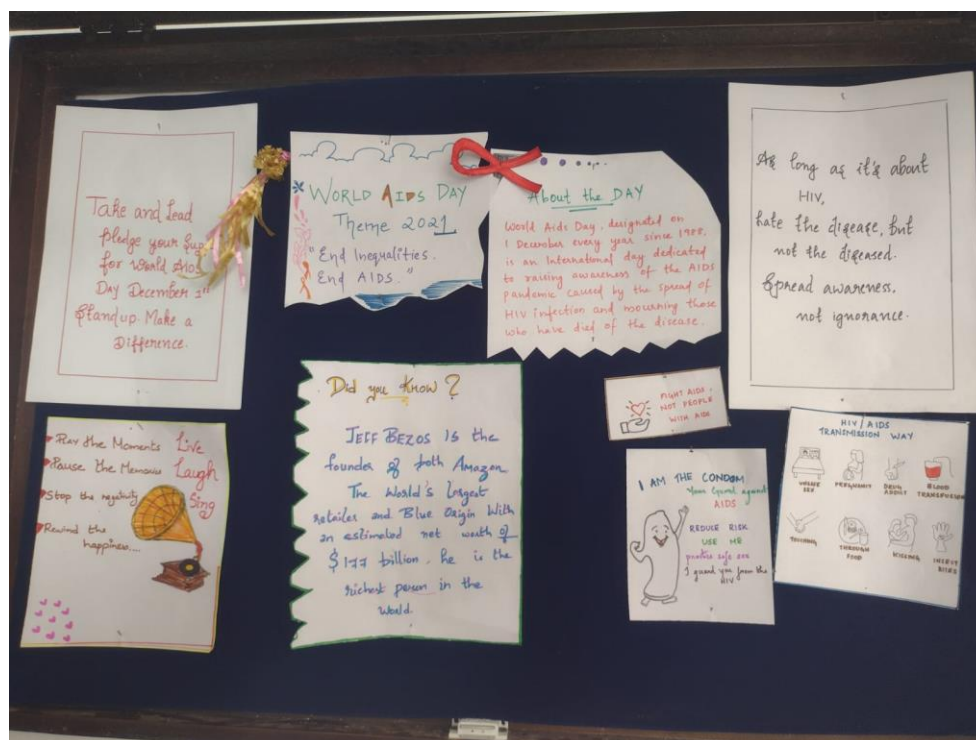 Take and Lead
pledge your
for World AIDS
Day December 1st
Standup. Make a
Difference.
WORLD AIDS DAY
Theme 2021
"End Inequalities.
End AIDS."
About the DAY
World Aids Day, designated on
1 December every year since 1988,
is an International day dedicated
to raising awareness of the AIDS
pandemic caused by the spread of
HIV infection and mourning those
who have died of the disease.
As long as it's about
HIV,
hate the disease, but
not the diseased.
Spread awareness,
not ignorance.
Play the Moments
Pause the Memories
Stop the negativity
Rewind the
happiness....
Live
Laugh
Sing
Did you Know?
JEFF BEZOS is the
founder of both Amazon
The World's largest
retailer and Blue Origin With
an estimated net worth of
$177 billion. he is the
richest person in the
World.
FIGHT AIDS,
NOT PEOPLE
WITH AIDS
I AM THE CONDOM
Your Guard against
AIDS
REDUCE RISK
USE ME
practice safe sex
I guard you from the
HIV
HIV/AIDS
TRANSMISSION WAY
UNSAFE SEX
PREGNANCY
DRUG ADDICT
BLOOD TRANSFUSION
TOUCHING
THROUGH FOOD
KISSING
INSECT BITES